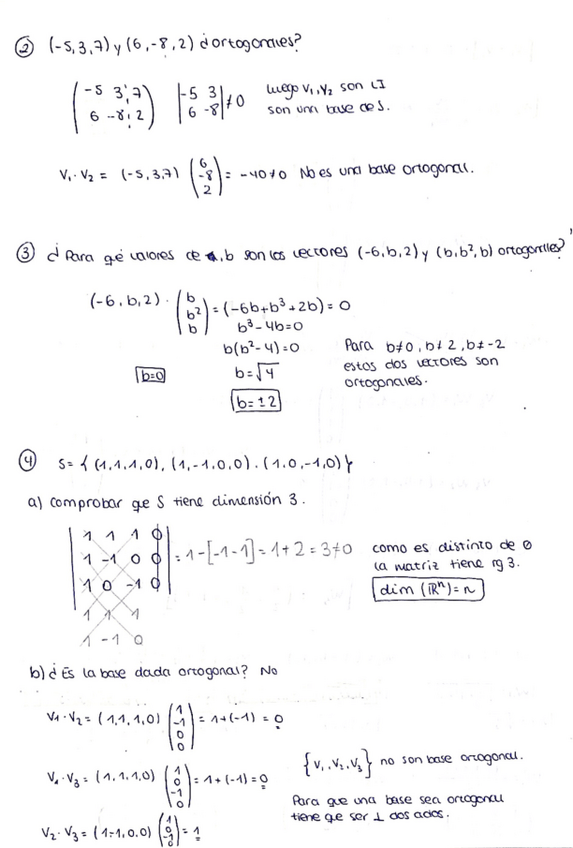 ② (-5,3,7) y (6,-8,2) ¿ortogonales?
( -5 3 7 ) | -5 3 | ≠ 0 Luego v₁,v₂ son LI
( 6 -8 2 ) | 6 -8 | son una base de S.
V₁·V₂ = (-5,3,7) ( 6 -8 2 ) = -40≠0 No es una base ortogonal.
③ ¿Para qué valores de b son los vectores (-6,b,2) y (b,b²,b) ortogonales?
(-6,b,2) · ( b b² b ) = (-6b+b³+2b) = 0
b³-4b=0
b(b²-4)=0
b=0 b=√4
b=±2
Para b≠0, b≠2, b≠-2
estos dos vectores son
ortogonales.
④ S= { (1,1,1,0), (1,-1,0,0), (1,0,-1,0) }
a) Comprobar que S tiene dimensión 3.
1 1 1 0
1 -1 0 0 = 1-[-1-1] = 1+2 = 3≠0
1 0 -1 0
1 1 1
1 -1 0
como es distinto de 0
la matriz tiene rg 3.
dim (ℝⁿ)=n
b) ¿Es la base dada ortogonal? No
V₁·V₂ = (1,1,1,0) ( 1 -1 0 0 ) = 1+(-1) = 0
V₁·V₃ = (1,1,1,0) ( 1 0 -1 0 ) = 1+(-1) = 0
V₂·V₃ = (1-1,0,0) ( 1 0 -1 0 ) = 1
{V₁,V₂,V₃} no son base ortogonal.
Para que una base sea ortogonal
tiene que ser ⊥ dos a dos.